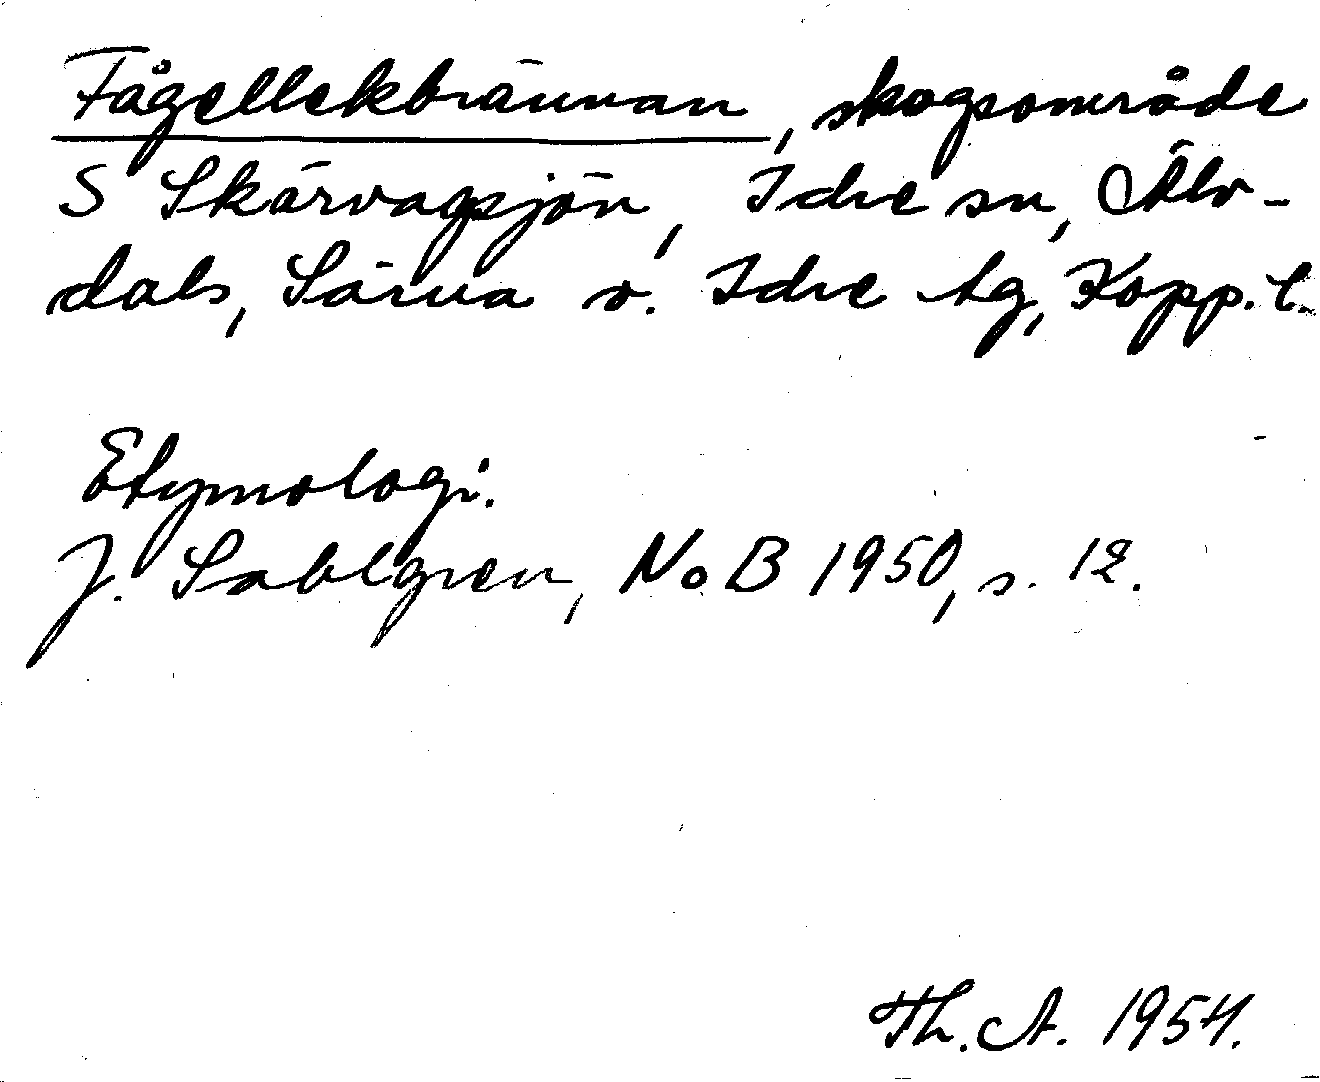 Fågellekbrännan, skogsområde
S Skärvagsjön, Idre sn, Älv-
dals, Särna o. Idre tg, Kopp. l.
Etymologi.
J. Sahlgren, NoB 1950, s. 12.
Th. A. 1954.